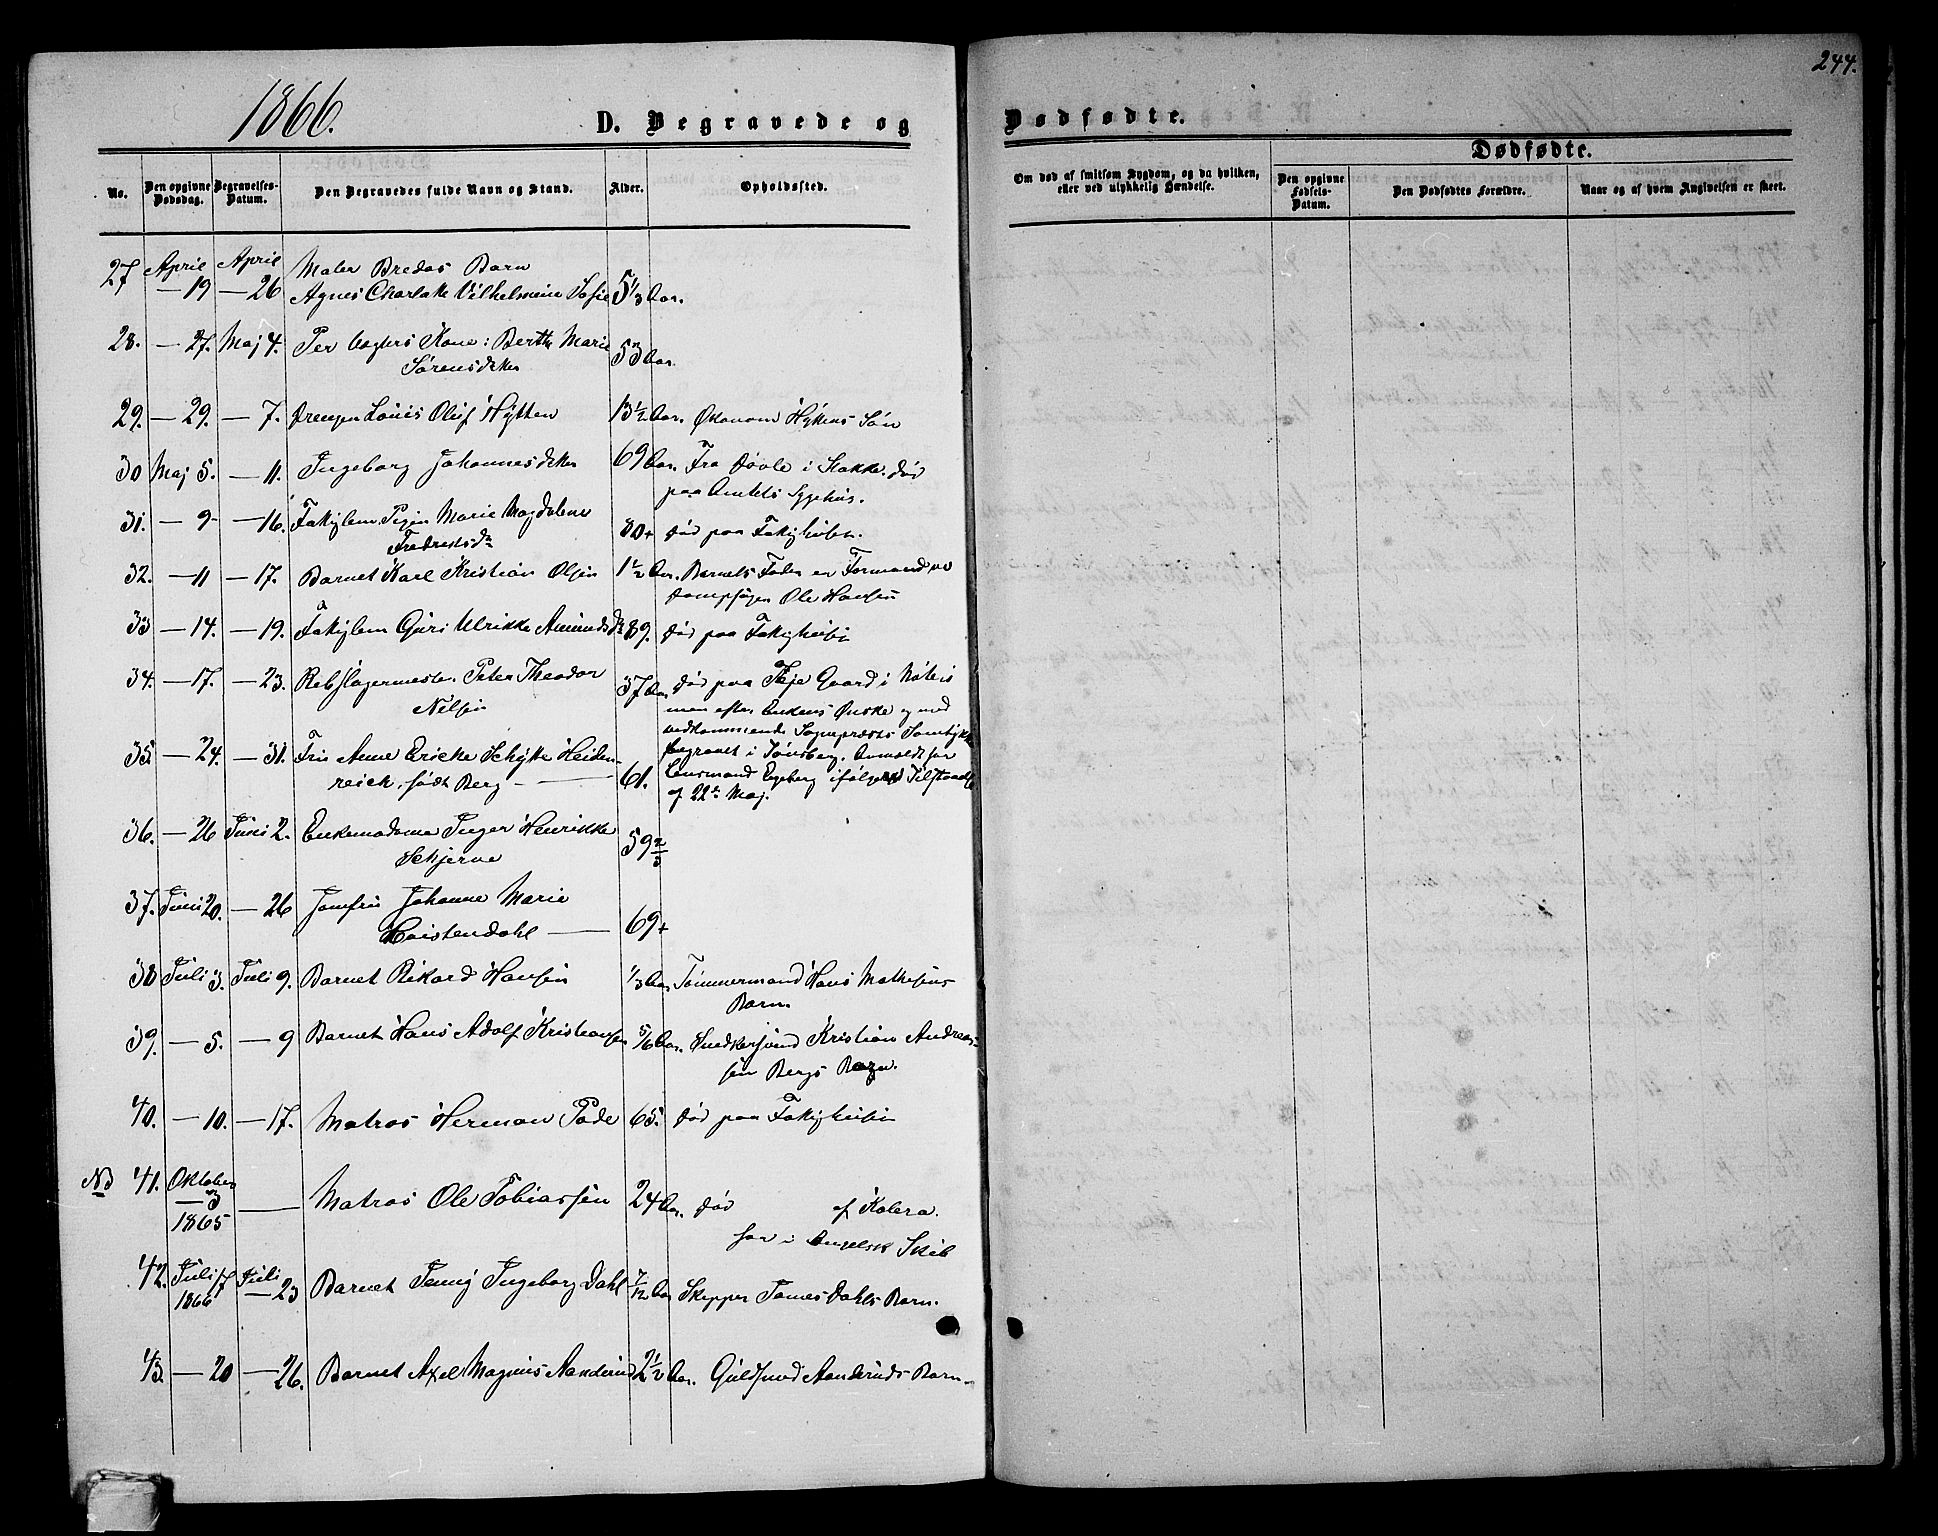 244.
1866.
D. Begravede og
Dødfødte.
No.
Den opgivne Dødsdag.
Begravelses-Datum.
Den Begravedes fulde Navn og Stand.
Alder.
Opholdssted.
Om død af smitsom Sygdom, og da hvilken,
eller ved ulykkelig Hændelse.
Dødfødte.
Den opgivne Fødsels-Datum.
Den Dødfødtes Forældre.
Naar og af hvem Angivelsen er skeet.
27 April April Maler Bredas Barn
— 19 — 26 Agnes Charlotte Vilhelmine Sofie 5 1/3 Aar.
28. — 27. Maj 4. Per Kone: Berthe Marie 53 Aar.
Sørensdtter
29. — 29. — 7. Drengen Louis Oluf Hytten 13 1/2 Aar. Økonom Hyttens Søn
30 Maj 5. — 11. Ingeborg Johannesdtter 69 Aar. Fra i Stokke. død
paa Amtets Sygehus.
31. — 9 — 16. Fattiglem Marie Magdalene 80+ død paa Fattighuset.
Fredriksdr
32. — 11 — 17. Barnet Karl Kristian Olsen 1 1/2 Aar. Barnets Fader er Formand ve
Dampsagen Ole Hansen
33 — 14. — 19. Fattiglem Guri Ulrikke Amundsdr 89. død paa Fattighuset
34. — 17. — 23. Rebslagermester Peter Theodor 37 Aar død paa Teje Gaard i Nøterø
Nilsen men efter Enkens Ønske og med
vedkommende Sognepræsts Samtykke
35 — 24. — 31. Fru Anne Ericke Schytte Heiden- begravet i Tønsberg. Anmeldt for
reich, født Berg — 61. Lensmand Engeberg ifølge
af 22de Maj.
36. — 26 Juni 2. Enkemadame Inger Henrikke 59 2/3
Schjerve
37. Juni 20. — 26 Jomfru Johanne Marie
Hvistendahl — 69+
38 Juli 3. Juli 9. Barnet Rikard Hansen 1/3 Aar Tømmermand Hans Mathesens
Barn.
39. — 5. — 9 Barnet Hans Adolf Kristiansen 5/6 Aar. Snedkersvend Kristian Andreas-
sen Bergs Barn.
40. — 10. — 17. Matros Herman Pade 65. død paa Fattighuset
Nd 41. Oktober
— 3 — Matros Ole Tobiassen 24 Aar. død af Kolera.
1865 for i Engelsk Skib
42. Juli 17 Juli
1866 — 23 Barnet Jenny Ingeborg Dahl 7/12 Aar Skipper James Dahls Barn.
43. — 20 — 26. Barnet Axel Magnus Aanderud 2 1/2 Aar. Guldsmed Aanderuds Barn.